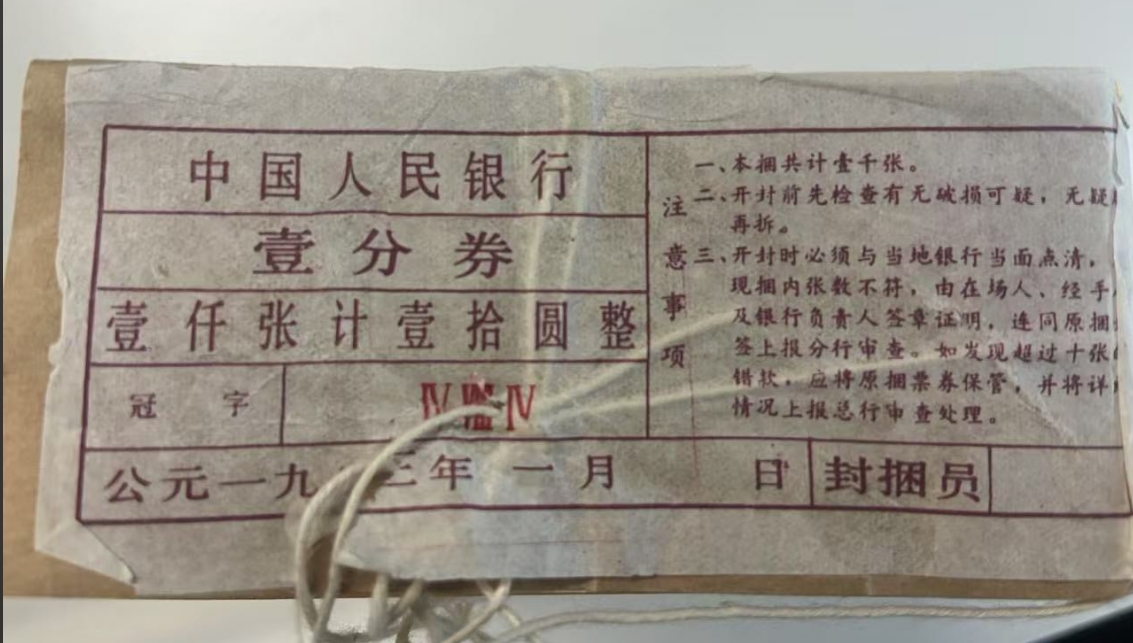 中国人民银行
壹分券
壹仟张计壹拾圆整
冠字
Ⅳ Ⅷ Ⅳ
公元一九 三年一月 日
封捆员
注意事项
一、本捆共计壹千张。
二、开封前先检查有无破损可疑，无疑
再拆。
三、开封时必须与当地银行当面点清，
现捆内张数不符，由在场人、经手
及银行负责人签章证明，连同原捆
签上报分行审查。如发现超过十张
错款，应将原捆票券保管，并将详
情况上报总行审查处理。